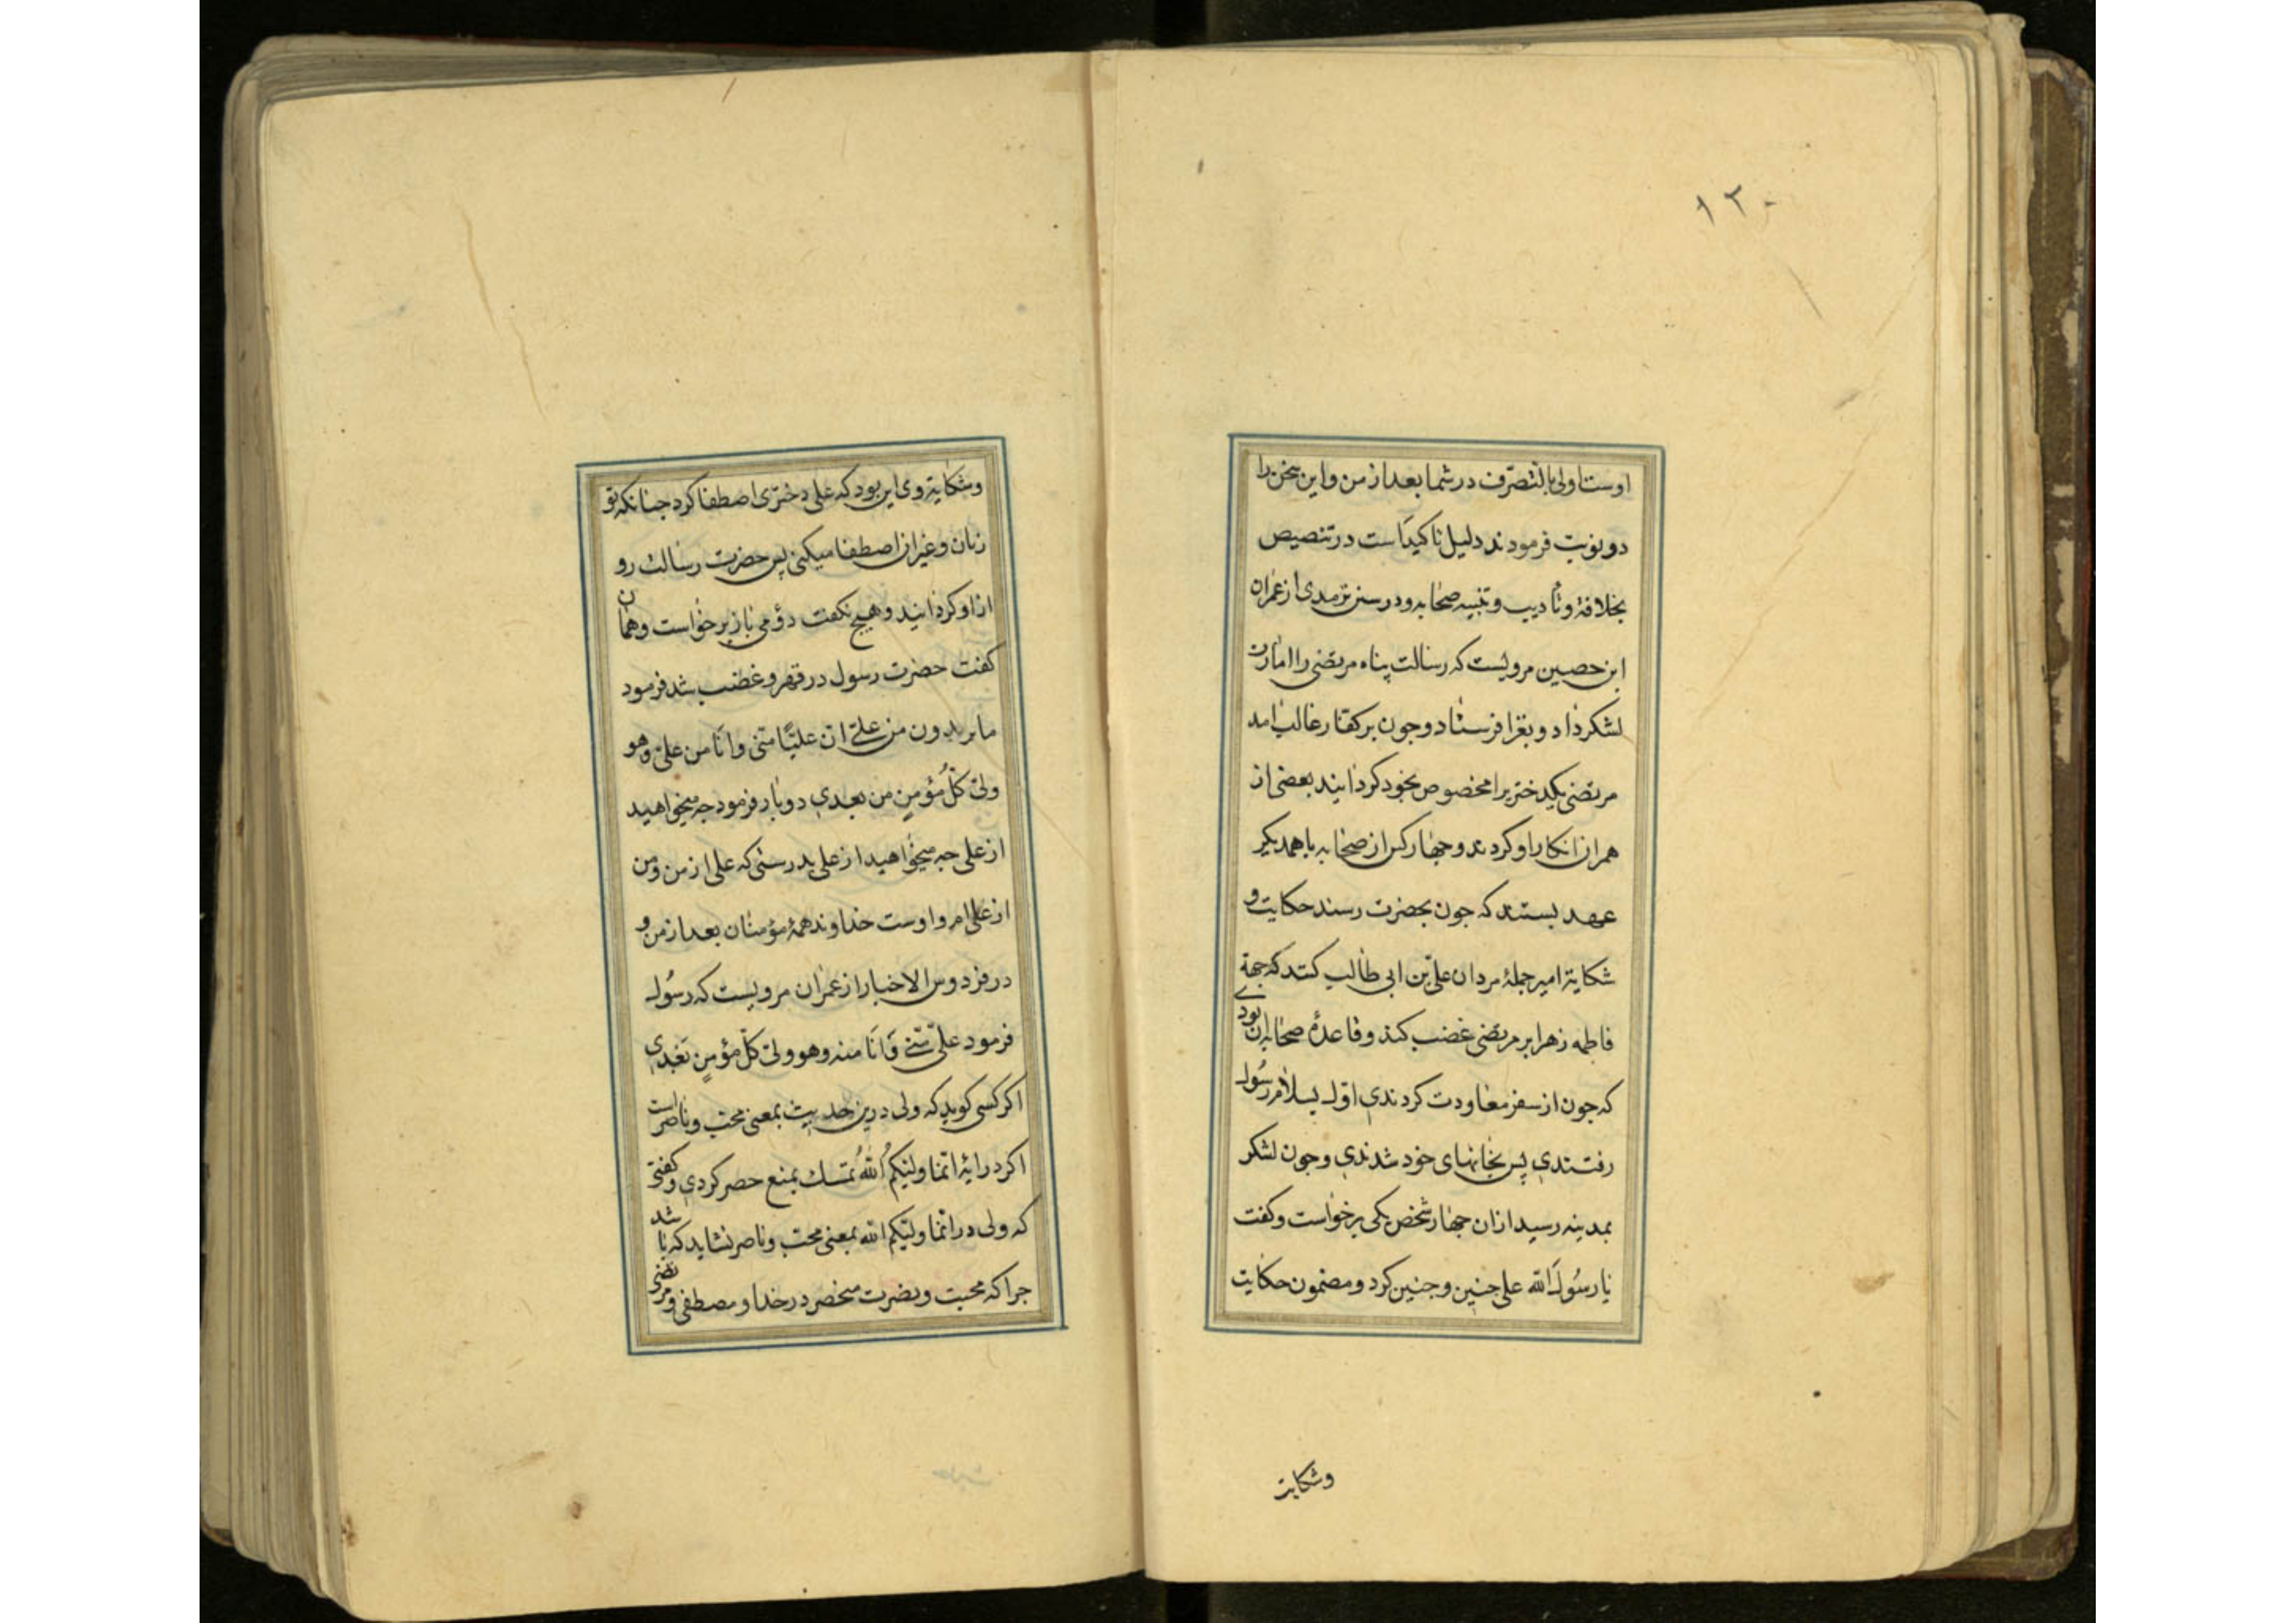 ١٢٠
اوست اولی بالتصرّف در شما بعد از من و این سخن را
دو نوبت فرمودند دلیل تاکیداست در تنصیص
بخلافة و تأدیب و تنبیه صحابه و در سنن ترمدی از عمران
ابن حصین مرویست که رسالت پناه مرتضی را امارت
لشکر داد و بغزا فرستاد و جون بر کفار غالب امد
مرتضی یکدختر برا مخصوص بخود کردانید بعضی از
همران انکار او کردند و جهار کس از صحابه با همدیکر
عهد بستند که جون بحضرت رسند حکایت و
شکایة امیر جملهٔ مردان علی بن ابی طالب کنند که جهة
فاطمه زهرا بر مرتضی غضب کند و قاعدهٔ صحابه ان بودے
که جون از سفر معاودت کردندی اول بسلام رسُول
رفتندی پس بخانهای خود شدندی و جون لشکر
بمدینه رسید ازان جهار شخص یکی برخواست و کفت
یا رسُولَ الله علی جنین و جنین کرد و مضمون حکایت
وشکایت
وشکایة وی این بود که علی دختری اصطفا کرد جنانکه تو
زنان و غیر ان اصطفا میکنی پس حضرت رسالت رو
از او کردانید و هیج نکفت دوٴمی باز برخواست و همان
کفت حضرت رسول در قهر و غضب شد فرمود
ما تریدون من علیّ انّ علیًّا منّی وانَا من علیّ و هو
ولیّ کلّ مؤمنٍ من بعدی دو بار فرمود جه میخواهید
از علی جه میخواهید از علی بدرستی که علی از من و من
از علی ام و اوست خداوند همهٔ مؤمنان بعد از من و
در فردوس الاخبار از عمران مرویست که رسُول
فرمود علیّ منّی وَانَا منه و هو ولیّ کلّ مؤمنٍ بَعْدی
اکر کسی کوید که ولی درین حدیث بمعنی محبّ و ناصر است
اکر در ایهٔ انّما ولیّکُم اللّهُ تمسک بمنع حصر کردی و کفتی
که ولی در انّما ولیّکم الله بمعنی محبّ و ناصر نشاید که باشد
جرا که محبت و نصرت منحصر در خدا و مصطفی و مرتضی